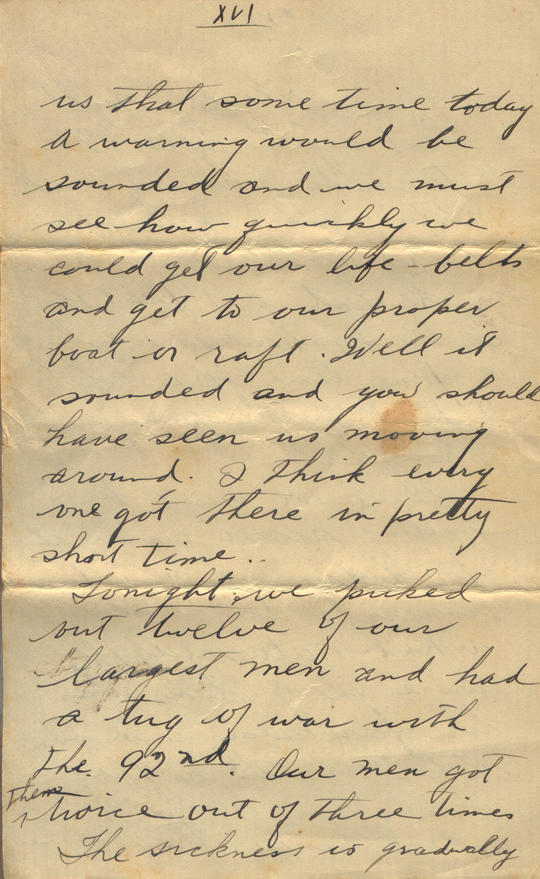 XVI
us that some time today
a warning would be
sounded and we must
see how quickly we
could get our life-belts
and get to our proper
boat or raft. Well it
sounded and you should
have seen us moving
around. I think every
one got there in pretty
short time..
Tonight we picked
out twelve of our
largest men and had
a tug of war with
the 92nd. Our men got
them
twice out of three times
The sickness is gradually